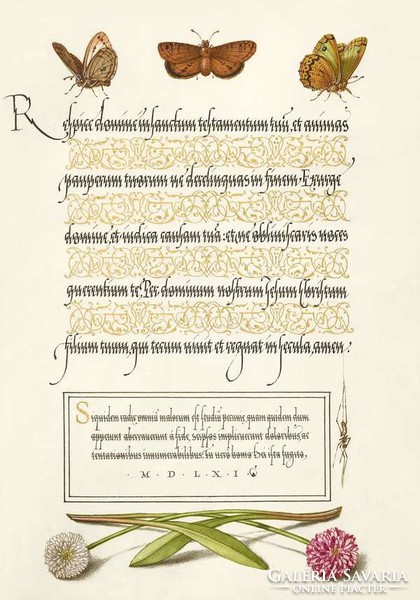 Respice domine in sanctum testamentum tuũ, et animas
pauperum tuorum ne derelinquas in finem. Exurge
domine, et iudica causam tuã: et ne obliuiscaris uoces
querentium te, Per dominum nostrum Iesum Christum
filium tuum, qui tecum uiuit et regnat in secula, amen.
Siquidem radix omniũ malorum est studiũ pecuniȩ, quam quidam dum
appetunt aberrauerunt à fide, seipsos implicuerunt doloribus, ac
tentationibus innumerabilibus. Tu uero homo Dei ista fugito,
· M · D · L X I ·
GALERIA SAVARIA
ONLINE PIACTÉR